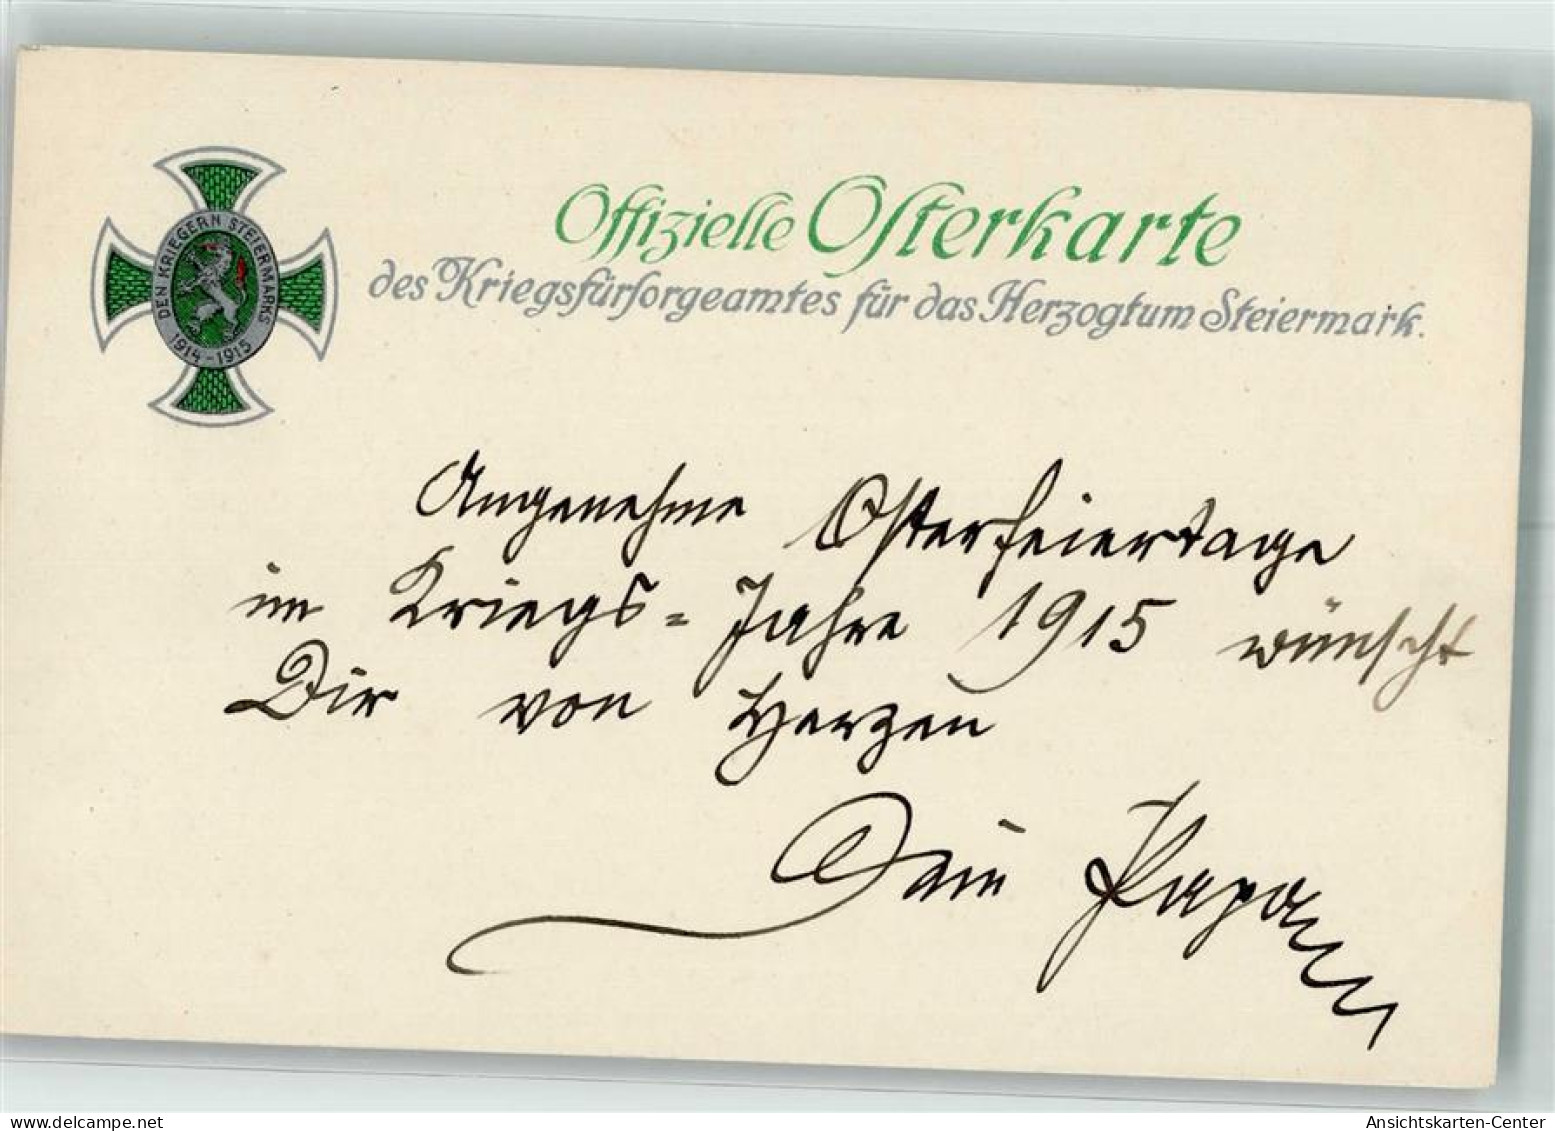 DEN KRIEGERN STEIERMARKS
1914-1915
Offizielle Osterkarte
des Kriegsfürsorgeamtes für das Herzogtum Steiermark.
Angenehme Osterfeiertage
im Kriegs=Jahre 1915 wünscht
Dir von Herzen
Dein Papa
delcampe.net
Ansichtskarten-Center